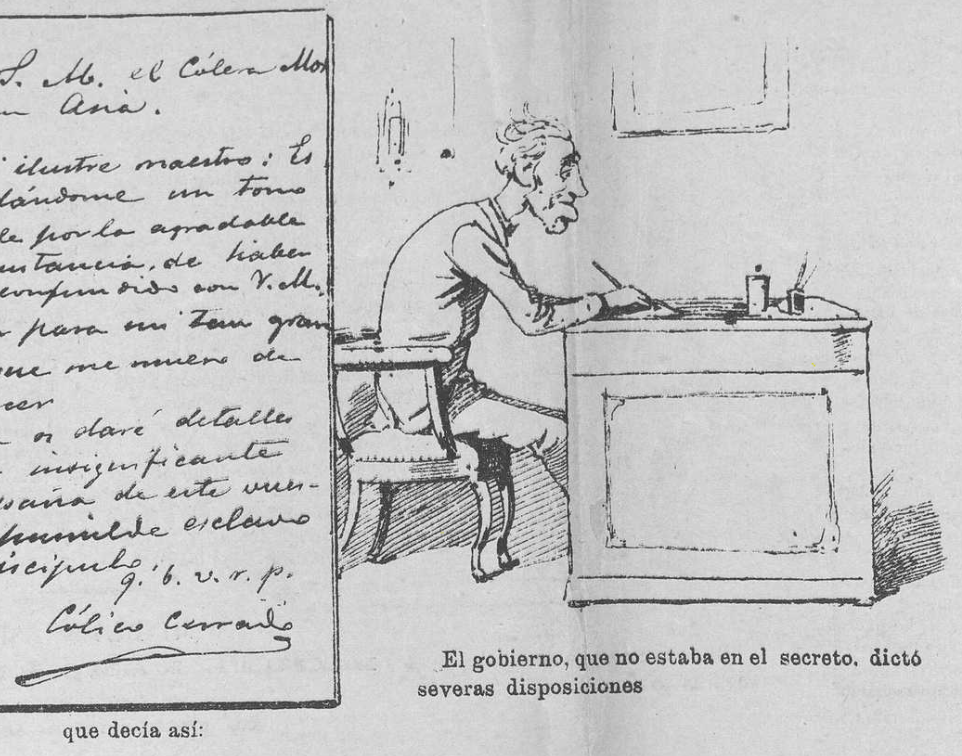 S. M. el Cólera Mor
Asia.
ilustre maestro: Es
dándome un tomo
le por la agradable
unstancia, de haber
confundido con V. M.,
r para mi tan gran
que me muero de
cer
os daré detalles
insignificante
saña de este vues-
humilde esclavo
iscípulo,
q. b. v. r. p.
Cólico Cerrado
que decía así:
El gobierno, que no estaba en el secreto, dictó
severas disposiciones